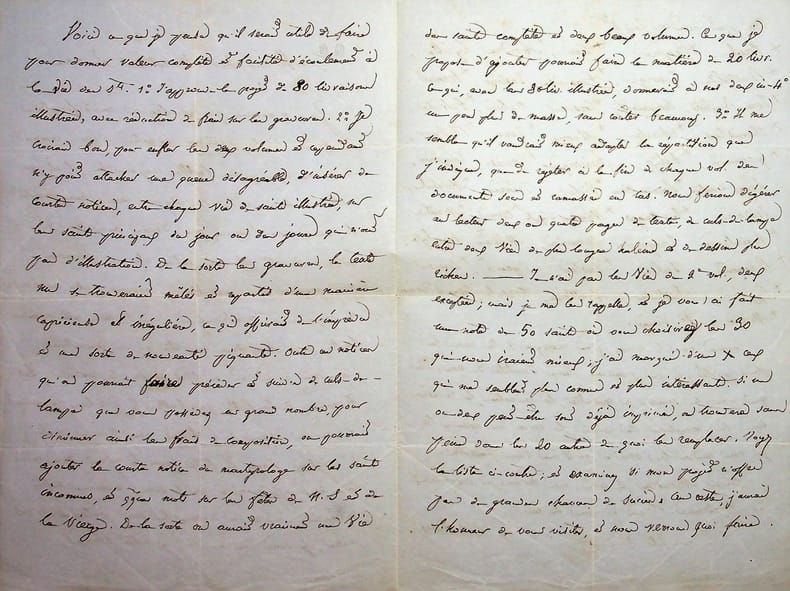 Voici ce que je pense qu'il serait utile de faire
pour donner valeur complète et facilité d'écoulement à
la Vie des Sts. 1º J'approuve le projet de 80 livraisons
illustrées, avec réduction de frais sur les gravures. 2º Je
croirais bon, pour enfler les deux volumes et cependant
n'y point attacher une queue désagréable, d'insérer de
courtes notices, entre chaque Vie de saints illustrée, sur
les saints principaux du jour ou des jours qui n'ont
pas d'illustration. De la sorte les gravures, le texte
se trouveraient mêlés et espartés d'une manière
capricieuse et irrégulière, ce qui offrirait de l'imprévu
et une sorte de nouveauté piquante. Outre ces notices
qu'on pourrait faire précéder et suivre de culs-de-
lampe que vous possédez en grand nombre, pour
diminuer ainsi les frais de composition, on pourrait
ajouter la courte notice du martyrologe sur les saints
inconnus, et qques mots sur les fêtes de N. S. et de
la Vierge. De la sorte on aurait vraiment une Vie
des saints complète et deux beaux volumes. Ce que je
propose d'ajouter pourrait faire la matière de 20 livr.
ce qui, avec les 80 liv. illustrées, donnerait à nos deux in-4º
un peu plus de masse, sans coûter beaucoup. 3º Il me
semble qu'il vaudrait mieux adopter la répartition que
j'indique, que de rejeter à la fin de chaque vol. des
documents secs et ramassés en tas. Nous ferions digérer
au lecteur deux ou quatre pages de texte, de culs-de-lampe
entre deux Vies de plus longue haleine et de dessins plus
riches. — Je n'ai pas les Vies du 2e vol., deux
exceptées; mais je me les rappelle, et je vous ai fait
une note de 50 saints où vous choisirez les 30
qui vous iraient mieux; j'ai marqué d'un X ceux
qui me semblent plus connus et plus intéressants. Si un
ou deux peut-être sont déjà imprimés, on trouvera sans
peine dans les 20 autres de quoi les remplacer. Voyez
la liste ci-contre; et examinez si mon projet n'offre
pas de grandes chances de succès. Au reste, j'aurai
l'honneur de vous visiter, et nous verrons quoi faire.